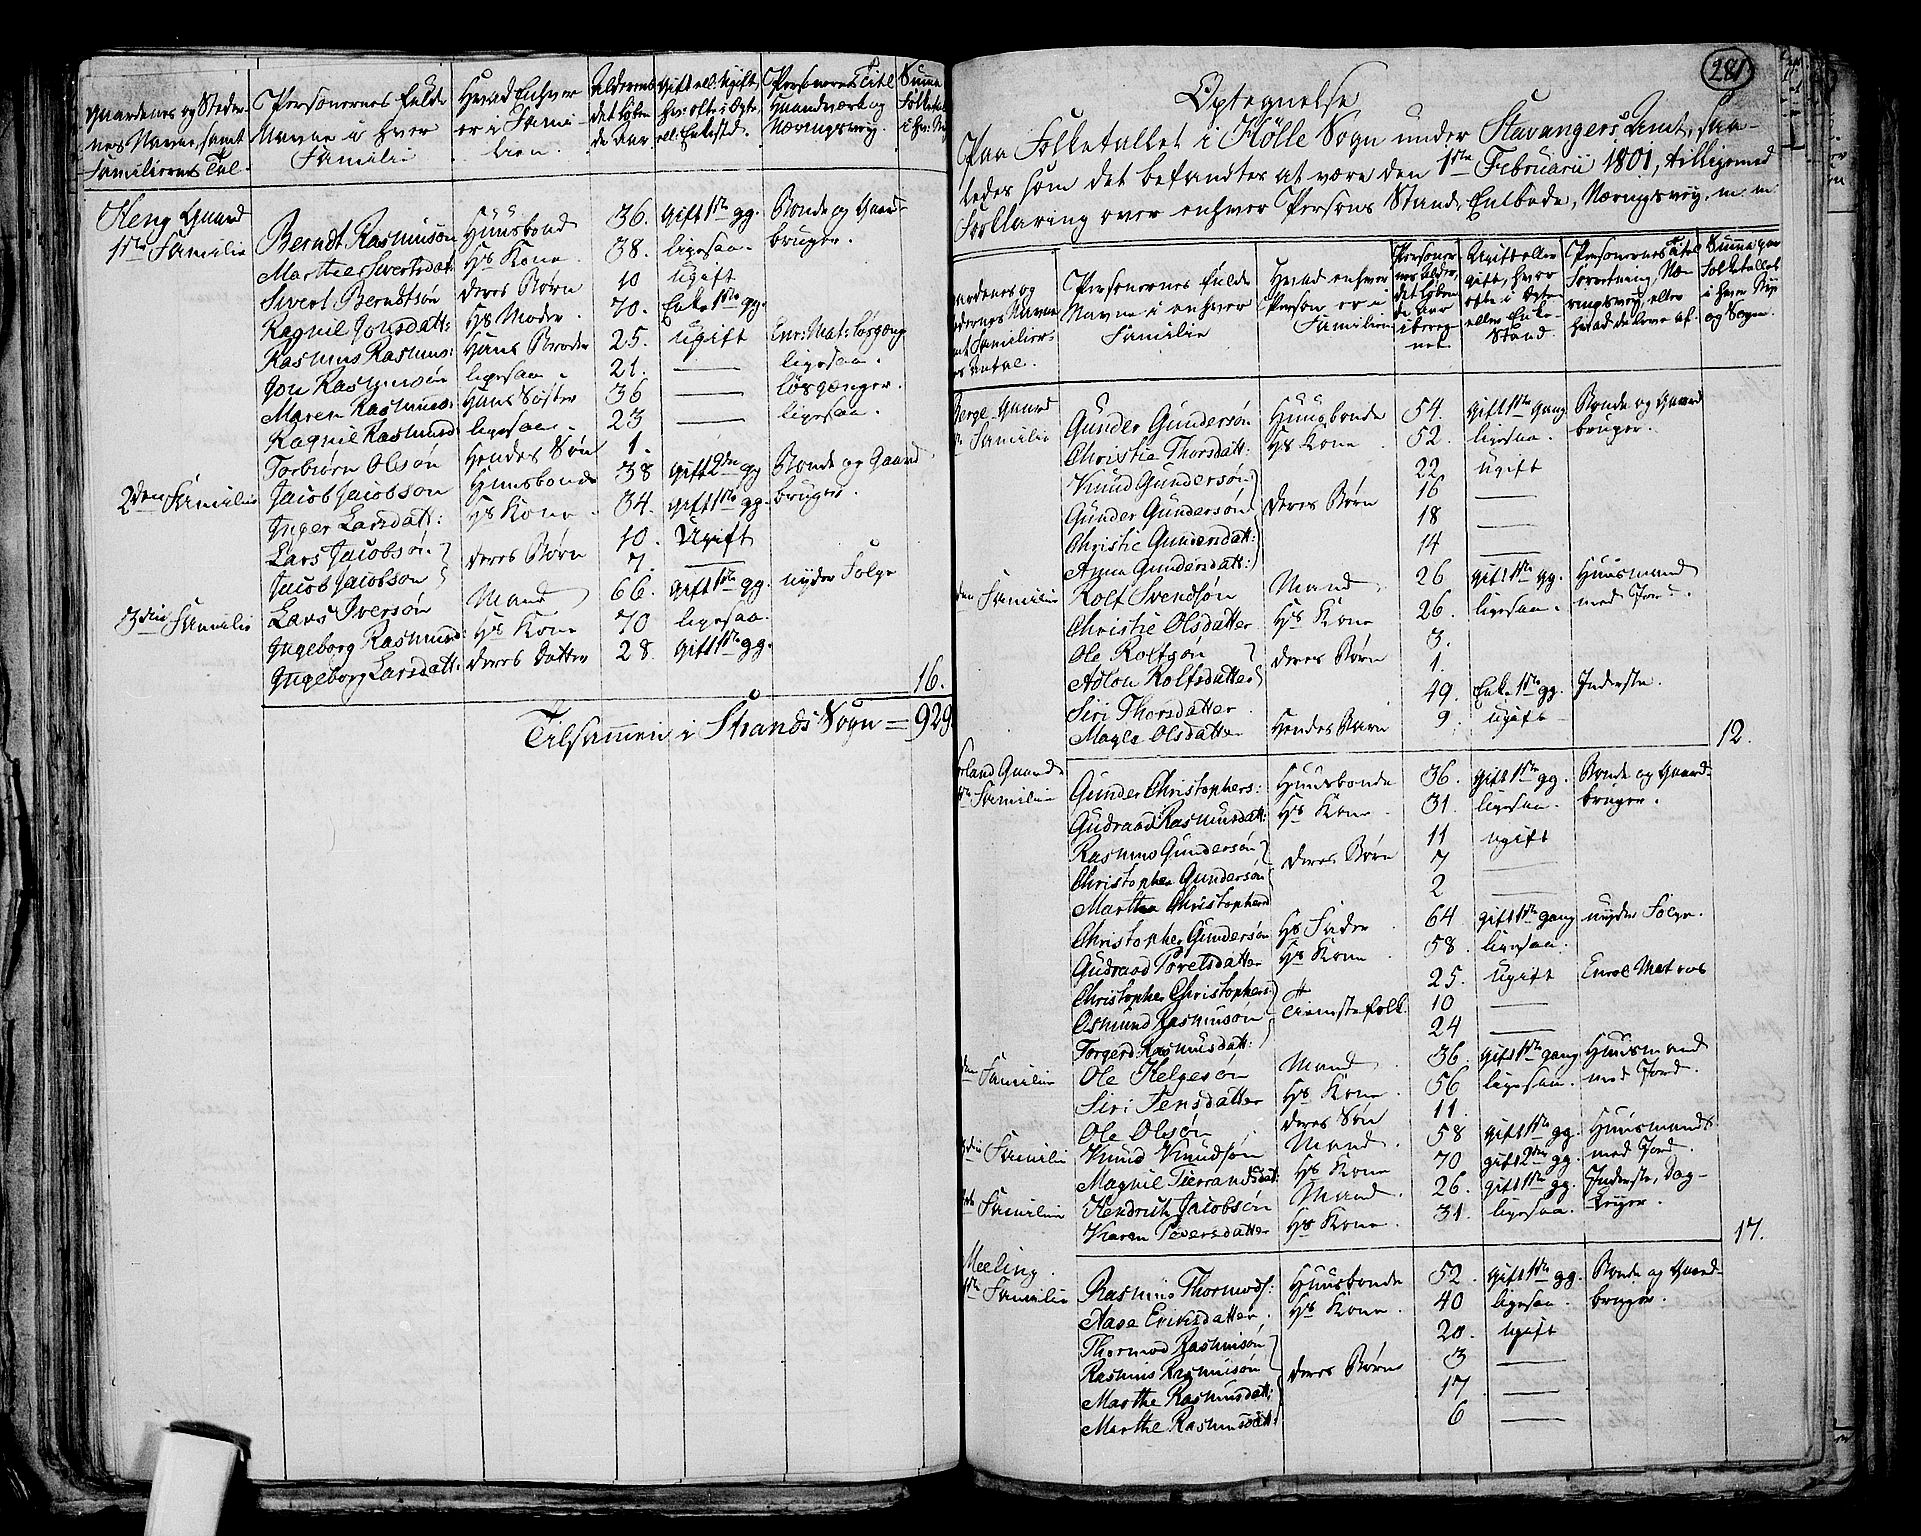 Gaardenes og Steder-
nes Navne, samt
Familiernes Tal
Personernes fulde
Navne i hver
Familie
Hvad Enhver
er i Fami-
lien.
Alderens
det løben-
de Aar
Gift ell: Ugift,
hvor ofte i Ægte,
ell: Enkestd.
Personernes Titel
Haandværk og
Næringsvey.
Summa
Folketal
i hver
Heng Gaard
1ste Familie
Berndt Rasmussøn Huusbond 36. Gift 1ste gg. Bonde og Gaard-
Marthe Sivertsdatt: Hs Kone 38. ligesaa bruger.
Sivert Berndtsøn deres Børn 10 Ugift
Ragnil Jonsdatt: Hs Moder 70. Enke 1ste gg.
Rasmus Rasmus: Hans Broder 25. Ugift Enr: Mat: løsgæng
Jon Rasmussøn ligesaa 21. — ligesaa.
Maren Rasmusd: Hans Søster 36 — løsgænger.
Ragnil Rasmusd: ligesaa 23 — ligesaa.
Torbiørn Olsøn Hendes Søn 1.
2den Familie Jacob Jacobson Huusbonde 38 Gift 2den gg Bonde og Gaard
Inger Larsdatt: Hs Kone 34. Gift 1ste gg. bruger.
Lars Jacobsøn deres Børn 10. Ugift
Jacob Jacobson 7. —
3die Familie Lars Iversøn Mand 66. Gift 1ste gg. nyder Folge
Ingeborg Rasmusd: Hs Kone 70 ligesaa.
Ingeborg Larsdatt: deres Datter 28 Gift 1ste gg.
16.
Tilsamen i Strands Sogn = 929
281
Optegnelse
Paa Folketallet i Hölle Sogn under Stavangers Amt, saa-
ledes som det befandtes at være den 1ste Februarii 1801, tilligemed
Forklaring over enhver Persons Stand, Embede, Næringsvey, m m
Personernes fulde
Navne i enhver
Familie
Hvad enhver
Person er i
Familien
Personer-
nes Alder,
det løben-
de Aar
ibereg-
net.
Ugift eller
gift, hvor
ofte i Ægte
eller Enke-
Stand.
Personernes Titel
Forretning, Næ-
ringsvey, eller
hvad de leve af
Summa paa
Folketallet
i hver Bye
og Sogn.
Berge Gaard
Familie Gunder Gundersøn Huusbonde 54. Gift 1ste Gang Bonde og Gaard
Christie Thorsdatt: Hs Kone 52. ligesaa. bruger.
Knud Gundersøn 22 ugift
Gunder Gundersøn deres Børn 16 —
Christie Gundersdatt: 18 —
Anna Gundersdatt: 14 —
den Familie Rolf Svendsøn Mand 26 gift 1ste gg. Huusmand
Christie Olsdatter Hs Kone 26. ligesaa. med Jord.
Ole Rolfsøn deres Børn 3.
Adlou Rolfsdatter 1.
Siri Thorsdatter 49. Enke 1ste gg. Inderste.
Magla Olsdatter Hendes Barn 9. Ugift
12.
orland Gaard
1ste Familie Gunder Christophers: Huusbonde 36. Gift 1ste gg. Bonde og Gaard-
Gudraad Rasmusdatt: Hs Kone 31. ligesaa. bruger.
Rasmus Gundersøn deres Børn 11 ugift
Christopher Gundersøn 7 —
Martha Christopherd 2 —
Christopher Gundersøn Hs Fader 64 gift 1ste gang nyder Folge.
Gudraad Torelsdatter Hs Kone 58. ligesaa.
Christopher Christophers: 25. Ugift Enrol Matros
Osmund Rasmussøn Tienstefolk. 10 —
Torgerd Rasmusdatt: 24 —
den Familie Ole Helgesøn Mand 36. Gift 1ste gang Huusmand
Siri Jensdatter Hs Kone 56 ligesaa. med Jord.
Ole Olesøn deres Søn 11.
3die Familie Knud Knudsøn Mand 58 Gift 1ste gg. Huusmand
Magnil Tierrandsdat: Hs Kone 70 gift 2den gg. med Jord
Familie Hendrich Jacobsøn Mand 26. gift 1ste gg. Inderste, Dag-
Karen Pedersdatter Hs Kone 31. ligesaa. Leyer.
17.
Meeling
1ste Familie Rasmus Thormods: Huusbonde 52. Gift 1ste gg. Bonde og Gaard-
Aase Erichsdatter Hs Kone 40 ligesaa. bruger.
Thormod Rasmusøn 20. Ugift
Rasmus Rasmusøn deres Børn 3 —
Marthe Rasmusdatt: 17 —
Marthe Rasmusdatt: 6 —